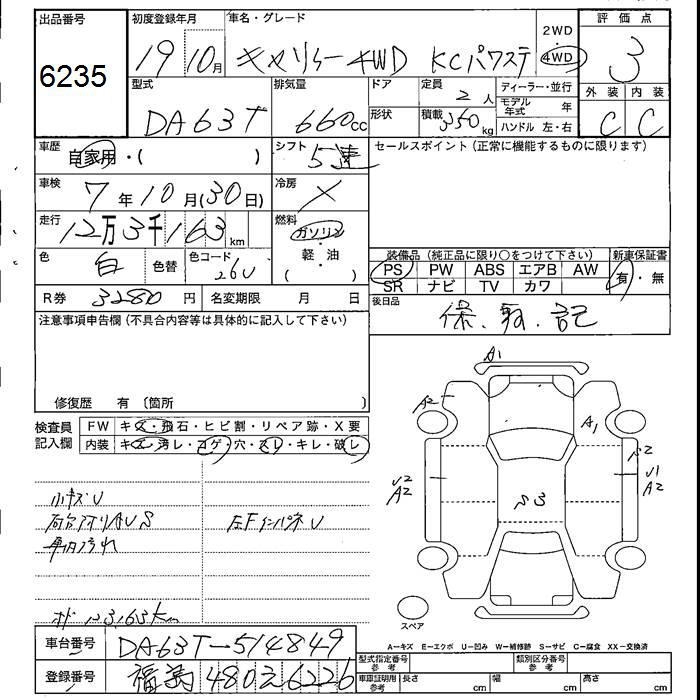 出品番号
6235
初度登録年月
19 10月
車名・グレード
キャリィー 4WD KCパワステ
2WD
4WD
評価点
3
外装 内装
C C
型式
DA63T
排気量
660cc
ドア
形状
定員
2人
積載
350kg
ディーラー・並行
モデル年式 年
ハンドル 左・右
車歴
自家用・( )
シフト
5速
セールスポイント(正常に機能するものに限ります)
車検
7年10月(30日)
冷房
X
走行
12万3千163km
燃料
ガソリン
軽・油
( )
色
白
色替
色コード
26U
装備品(純正品に限り○をつけて下さい)
PS PW ABS エアB AW
SR ナビ TV カワ
新車保証書
有・無
R券 3280円
名変期限 月 日
後日品
保、取、記
注意事項申告欄(不具合内容等は具体的に記入して下さい)
修復歴 有 〔箇所 〕
検査員記入欄
FW キズ・飛石・ヒビ割・リペア跡・X要
内装 キズ・汚レ・コゲ・穴・スレ・キレ・破レ
小キズU
荷台アオリAUS
左FインパネU
車内汚れ
123,163km
A1
A2
A1
U2
A2
U1
A2
スペア
A-キズ E-エクボ U-凹み W-補修跡 S-サビ C-腐食 XX-交換済
車台番号
DA63T-514849
登録番号
480 6226
型式指定番号
参考
類別区分番号
参考
車庫証明用
参考
長さ cm
幅 cm
高さ cm